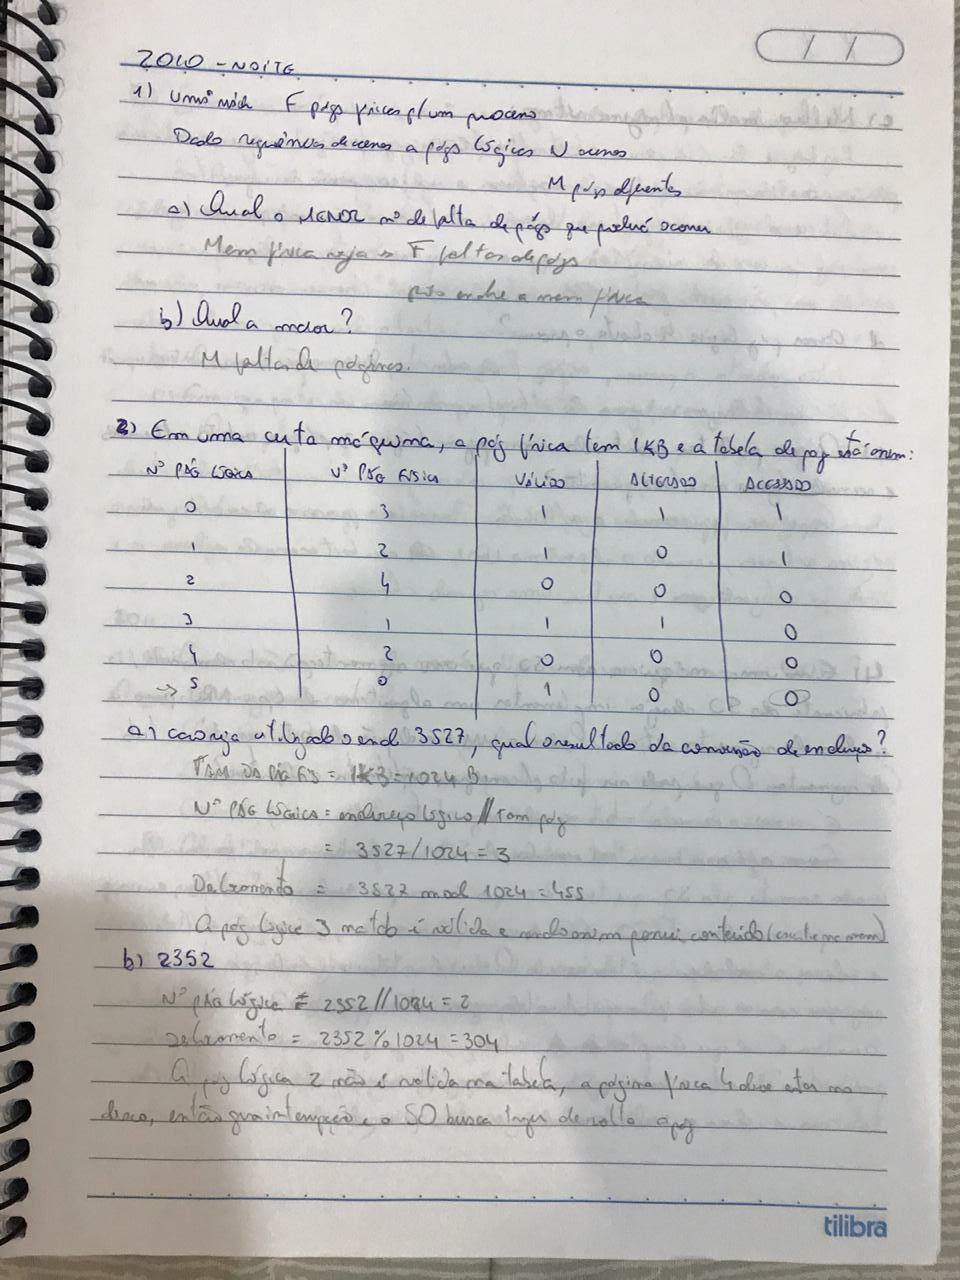 2010 - NOITE
1) Uma máq F págs físicas p/ um processo
Dado sequências de acessos a págs lógicas N acessos
M págs diferentes
a) Qual o MENOR nº de falta de págs que poderá ocorrer
Mem física F faltas de págs
encher a mem física
b) Qual a maior?
M faltas de páginas.
2) Em uma certa máquina, a pág física tem 1KB e a tabela de pag está assim:
Nº PÁG LÓGICA Nº PÁG FÍSICA VÁLIDO ALTERADO ACESSADO
0 3 1 1 1
1 2 1 0 1
2 4 0 0 0
3 1 1 1 0
4 2 0 0 0
-> 5 0 1 0 0
a) caso seja utilizado o end 3527, qual o resultado da conversão de endereço?
TAM DA PÁG FÍS = 1KB = 1024 B
Nº PÁG LÓGICA = endereço lógico // tam pág
= 3527/1024 = 3
Deslocamento = 3527 mod 1024 = 455
A pág lógica 3 na tab é válida e sendo assim possui conteúdo (está na mem)
b) 2352
Nº PÁG LÓGICA = 2352//1024 = 2
Deslocamento = 2352 % 1024 = 304
A pág lógica 2 não é válida na tabela, a página física 4 deve estar no
disco, então gera interrupção e o SO busca trazer de volta a pág
tilibra